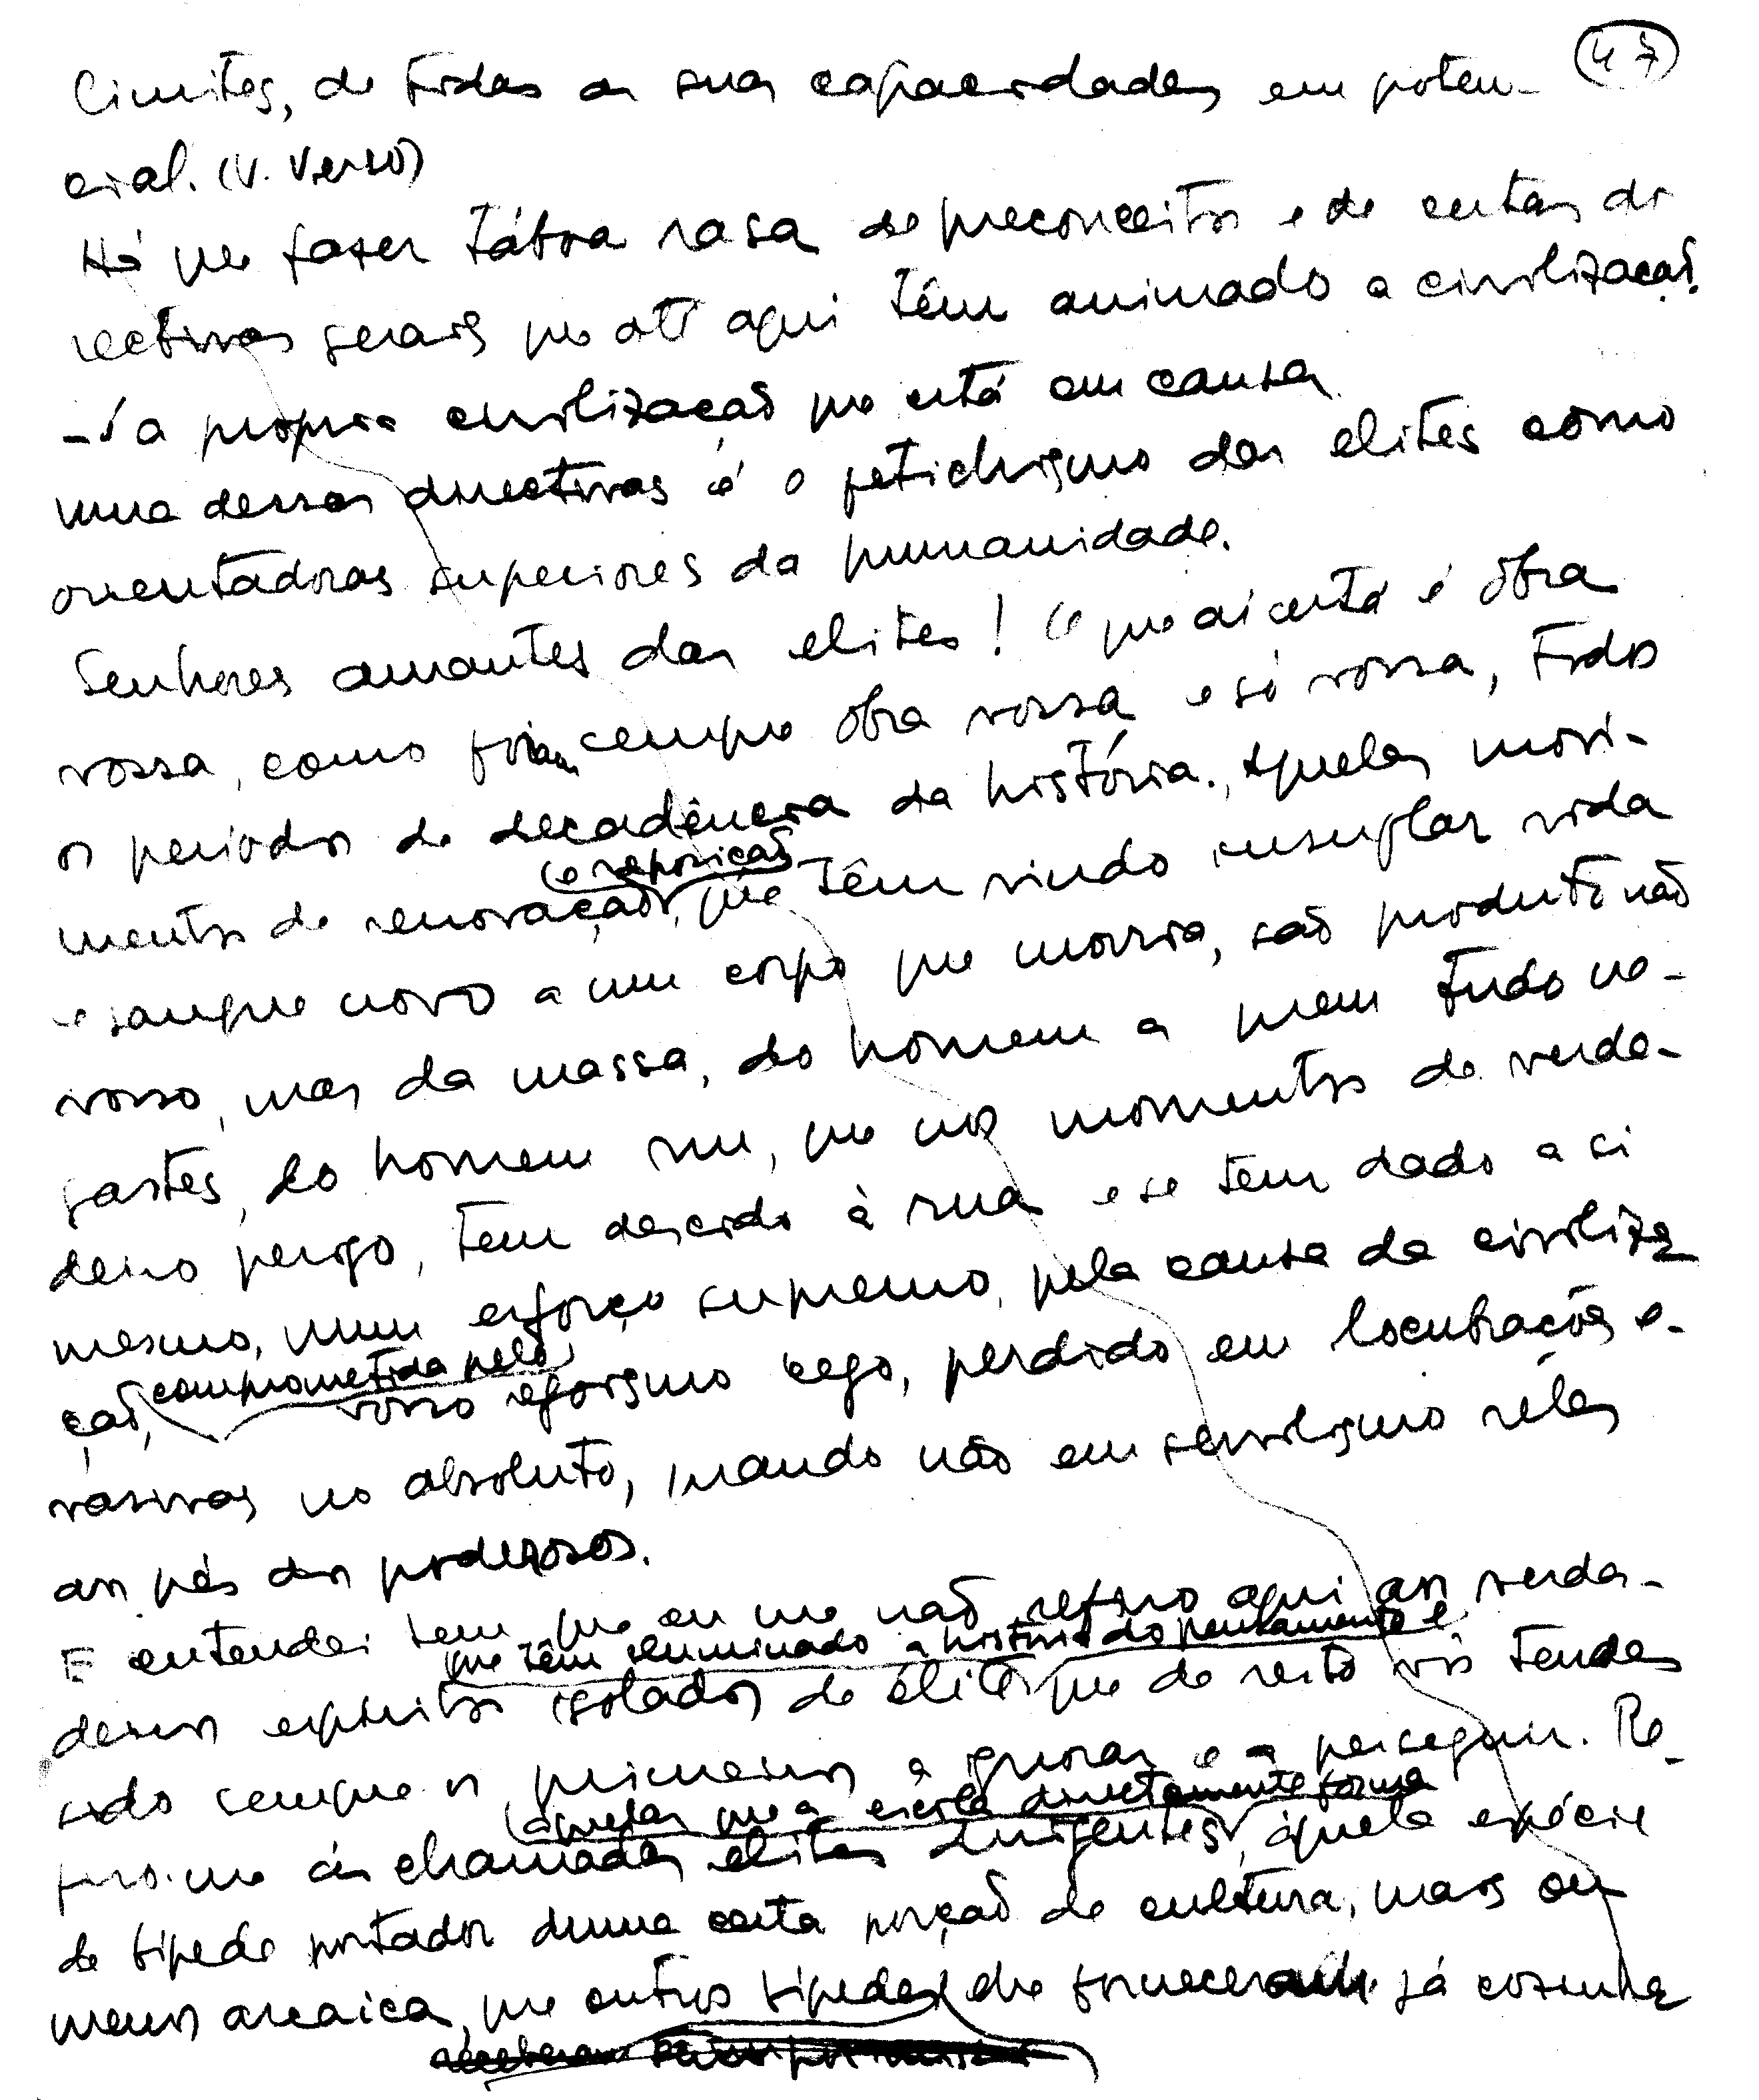 47
limites, de todas as suas capacidades em poten-
cial. (V. Verso)
Há que fazer tábua rasa de preconceitos e de certas di
rectivas gerais que até aqui têm animado a civilização.
- é a própria civilização que está em causa
uma dessas directivas é o fetichismo das elites como
orientadoras superiores da humanidade.
Senhores amantes das elites! O que aí está é obra
vossa, como foram sempre obra vossa e só vossa, todos
os períodos de decadência da história. Aqueles movi-
(e reposição
mentos de renovação, que têm vindo insuflar vida
e sangue novo a um corpo que morria, são produto não
vosso, mas da massa, do homem a quem tudo ne-
gastes, do homem nu, que nos momentos de verda-
deiro perigo, tem descido à rua e se tem dado a si
mesmo, num esforço supremo, pela causa da civiliza
comprometida pelo
ção, vosso egoísmo cego, perdido em locubrações e-
vasivas no absoluto, quando não em servilismo reles
aos pés dos poderosos.
E entendei bem que eu me não refiro aqui aos verda-
que têm iluminado a história do pensamento e
deiros espíritos isolados de élite que de resto vós tendes
sido sempre os primeiros a ignorar e a perseguir. Re-
(àquelas que a escola directamente forma
firo-me às chamadas elites dirigentes, àquela espécie
de bípede portador duma certa porção de cultura, mais ou
menos arcaica, que outros bípedes lhe forneceram já cozinha